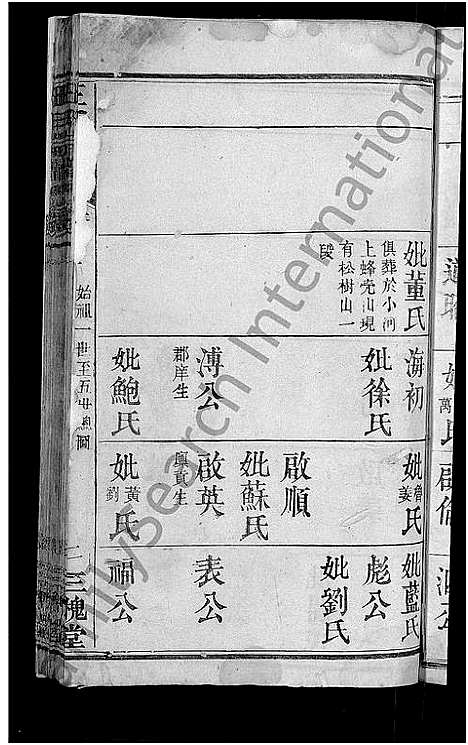 妣董氏
俱葬於小河
上蜂壳山現
有松樹山一
段
海初
妣徐氏
溥公
郡庠生
妣鮑氏
妣魯姜氏
啟順
妣蘇氏
啟英
廩貢生
妣黃劉氏
妣藍氏
彪公
妣劉氏
表公
福公
始祖一世至五世總圖
三槐堂
MySearch International